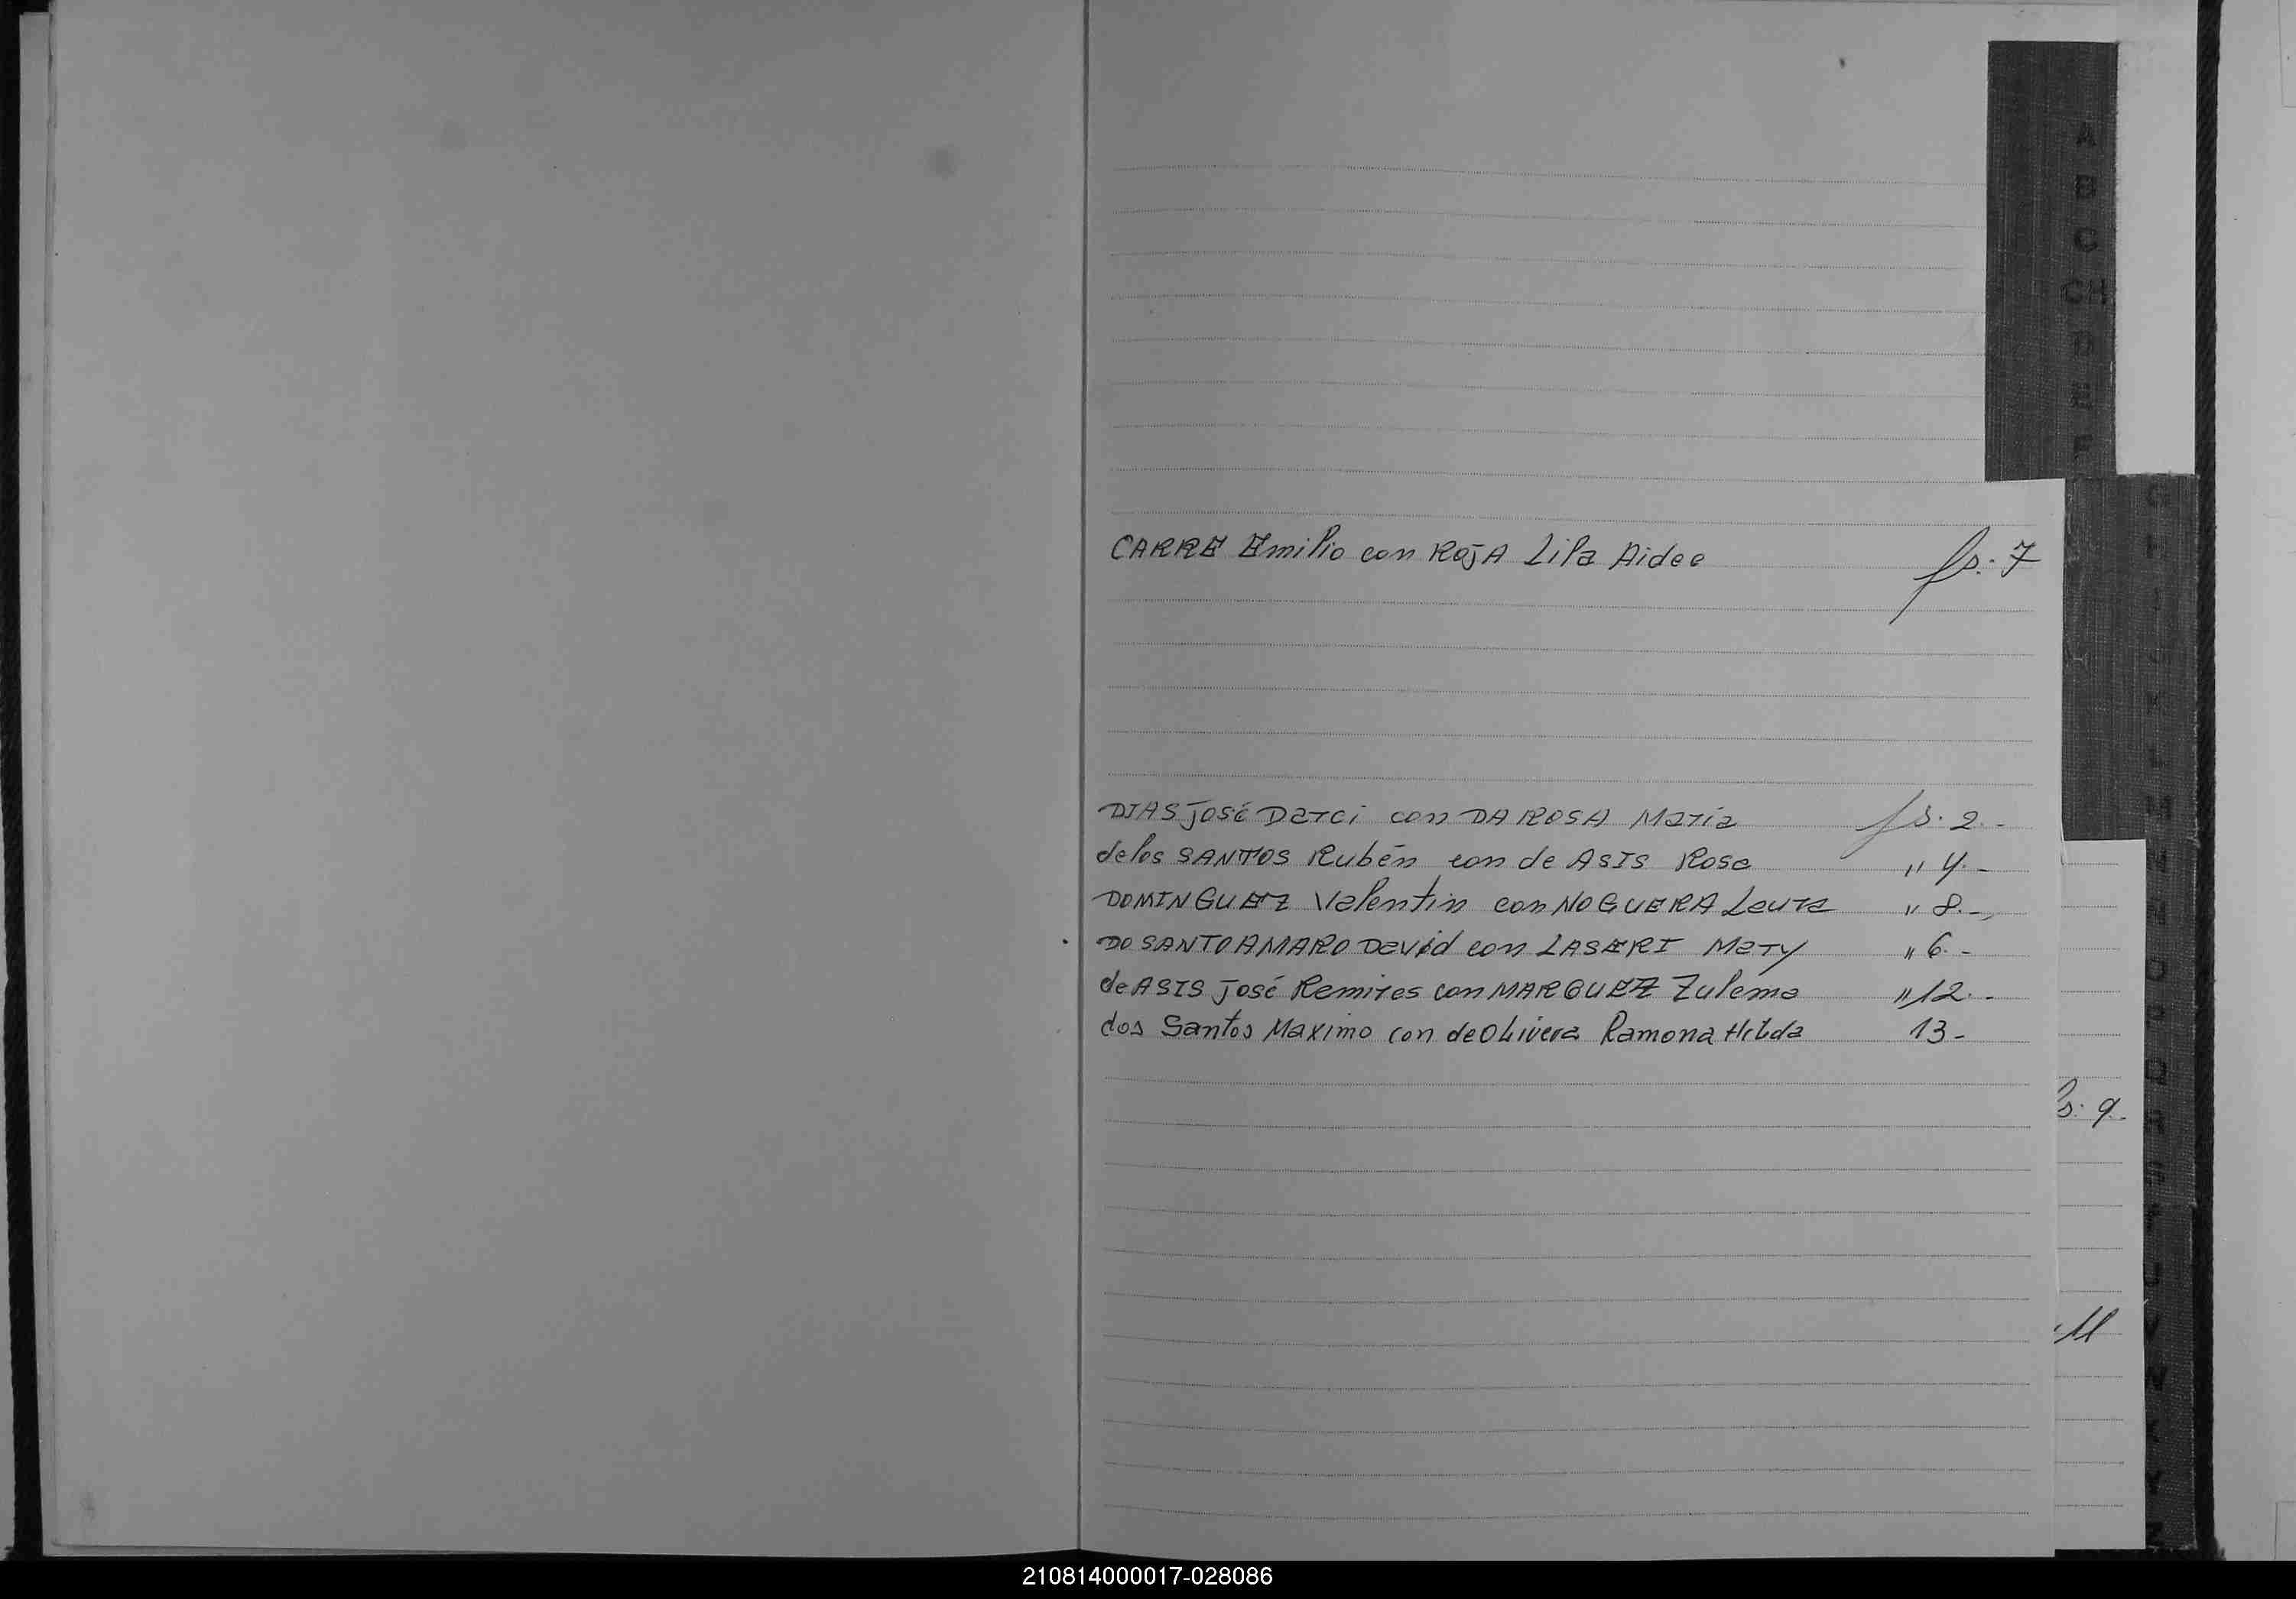 A
B
C
CH
D
E
F
CARRE Emilio con ROJA Lila Aidee fs. 7
DIAS José Darci con DA ROSA Maria fs. 2.-
de los SANTOS Rubén con de ASIS Rosa " 4.-
DOMINGUEZ Valentin con NOGUERA Laura " 8.-
DO SANTO AMARO David con LASERI Mary " 6.-
de ASIS José Remires con MARQUEZ Zulema " 12.-
dos Santos Maximo con de Olivera Ramona Hilda 13-
s. 9.
" 11
210814000017-028086